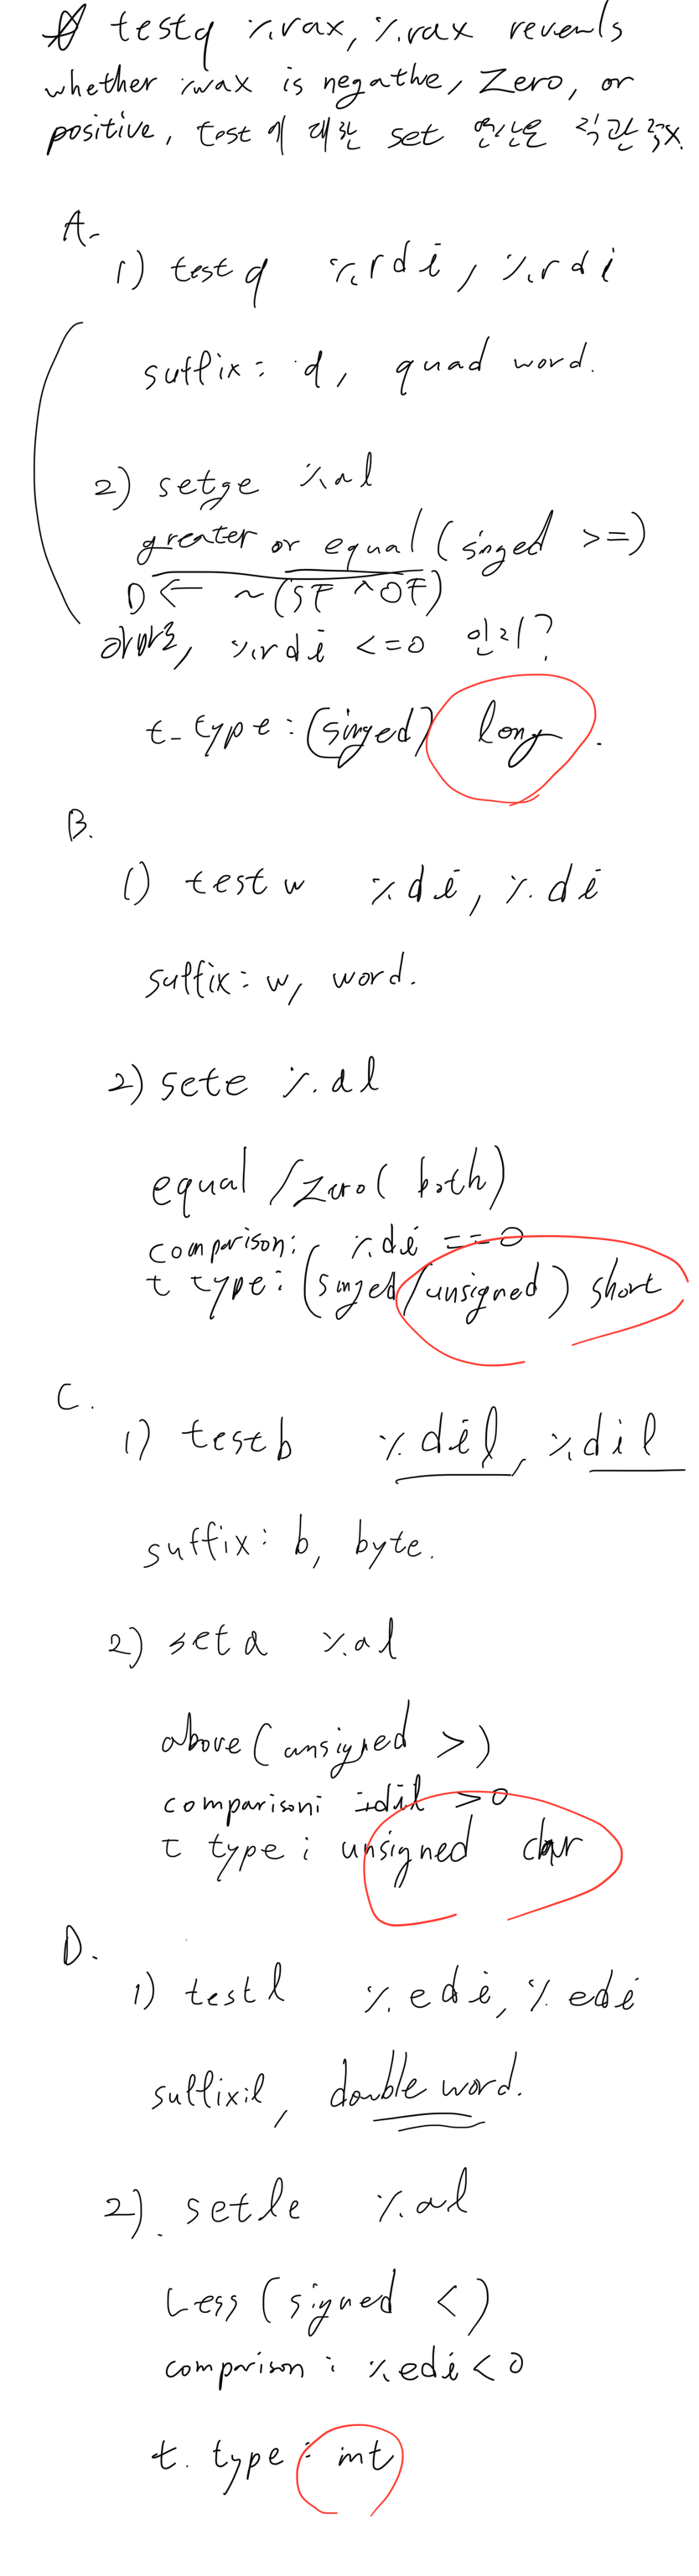 testq %rax, %rax reveals
whether %rax is negative, Zero, or
positive, test에 대한 set 연산은 직관적x.
A.
1) testq %rdi, %rdi
suffix: q, quad word.
2) setge %al
greater or equal (singed >=)
D ← ~(SF ^ OF)
%rdi <=0 인지?
t_type: (singed) long.
B.
1) testw %di, %di
suffix: w, word.
2) sete %al
equal / Zero (both)
comparison: %di ==0
t type: (singed/unsigned) short
C.
1) testb %dil, %dil
suffix: b, byte.
2) seta %al
above (unsigned >)
comparison: %dil >0
t type: unsigned char
D.
1) testl %edi, %edi
suffix: l, double word.
2). setle %al
Less (signed <)
comparison: %edi < 0
t. type: int